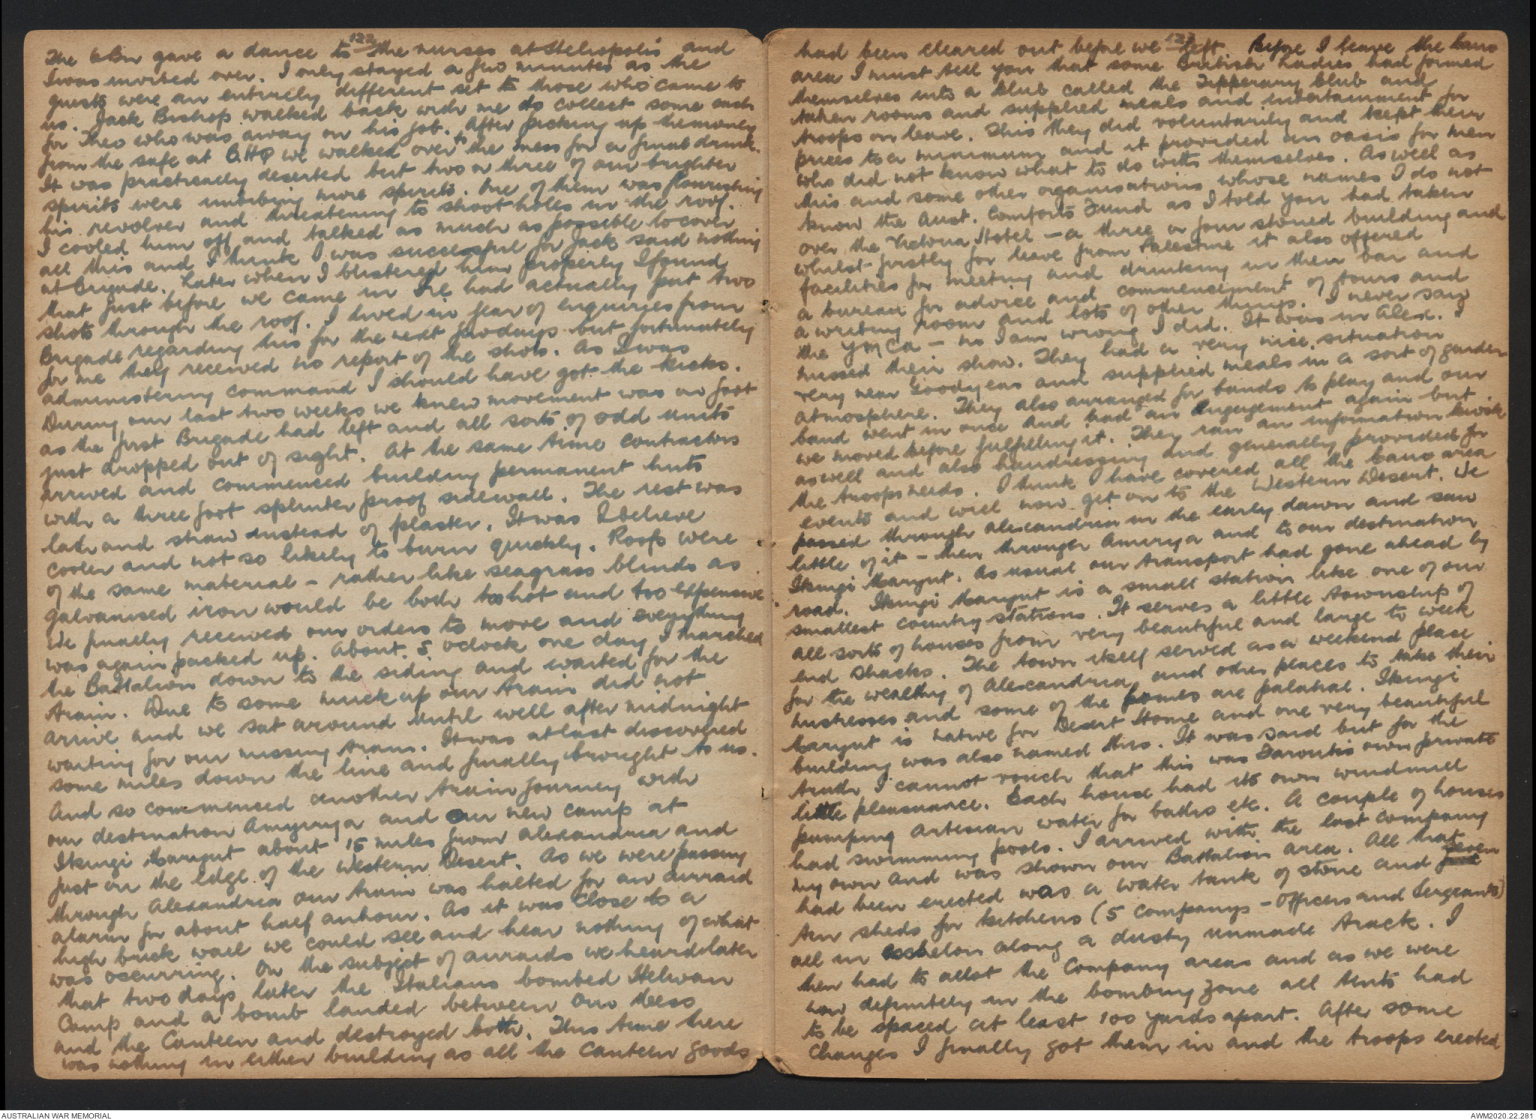 122
The 6 Bn gave a dance to the nurses at Heliopolis and
I was invited over. I only stayed a few minutes as the
guests were an entirely different set to those who came to
us. Jack Bishop walked back with me to collect some cash
for Theo who was away on his job. After picking up the money
from the safe at B.H.Q we walked over to the mess for a final drink.
It was practically deserted but two or three of our brighter
spirits were imbibing more spirits. One of them was flourishing
his revolver and threatening to shoot holes in the roof.
I cooled him off and talked as much as possible to cover
all this and I think I was successful for Jack said nothing
at Brigade. Later when I blistered him properly I found
that just before we came in he had actually put two
shots through the roof. I lived in fear of enquiries from
Brigade regarding this for the next few days but fortunately
for me they received no report of the shots. As I was
administering command I should have got the kicks.
During our last two weeks we knew movement was on foot
as the first Brigade had left and all sorts of odd units
just dropped out of sight. At the same time contractors
arrived and commenced building permanent huts
with a three foot splinter proof sidewall. The rest was
lath and straw instead of plaster. It was I believe
cooler and not so likely to burn quickly. Roofs were
of the same material - rather like seagrass blinds as
galvanised iron would be both too hot and too expensive
We finally received our orders to move and everything
was again packed up. About 5 oclock one day I marched
the Battalion down to the siding and waited for the
train. Due to some muck up our train did not
arrive and we sat around until well after midnight
waiting for our missing train. It was at last discovered
some miles down the line and finally brought to us.
And so commenced another train journey with
our destination Amyriya and our new camp at
Ikingi Maryut about 15 miles from Alexandria and
just on the edge of the Western Desert. As we were passing
through Alexandria our train was halted for an airraid
alarm for about half an hour. As it was close to a
high brick wall we could see and hear nothing of what
was occurring. On the subject of airraids we heard later
that two days later the Italians bombed Helwan
Camp and a bomb landed between our Mess
and the Canteen and destroyed both. This time there
was nothing in either building as all the canteen goods
123
had been cleared out before we left. Before I leave the Cairo
area I must tell you that some British Ladies had formed
themselves into a club called the Tipperary Club and
taken rooms and supplied meals and entertainment for
troops on leave. This they did voluntarily and kept their
prices to a minimum and it provided an oasis for men
who did not know what to do with themselves. As well as
this and some other organisations whose names I do not
know the Aust. Comforts Fund as I told you had taken
over the Victoria Hotel - a three or four storied building and
whilst firstly for leave from Palestine it also offered
facilities for meeting and drinking in their bar and
a bureau for advice and commencement of tours and
a writing room and lots of other things. I never saw
the YMCA - no I am wrong I did. It was in Alex. I
missed their show. They had a very nice situation
very near Goodyears and supplied meals in a sort of garden
atmosphere. They also arranged for bands to play and our
band went in once and had an engagement again but
we moved before fulfilling it. They ran an information kiosk
as well and also hairdressing and generally provided for
the troops needs. I think I have covered all the Cairo area
events and will now get on to the Western Desert. We
passed through Alexandria in the early dawn and saw
little of it - then through Amiriya and to our destination
Ikingi Maryut. As usual our transport had gone ahead by
road. Ikingi Maryut is a small station like one of our
smallest country stations. It serves a little township of
all sorts of houses from very beautiful and large to week
end shacks. The town itself served as a weekend place
for the wealthy of Alexandria and other places to take their
mistresses and some of the homes are palatial. Ikingi
Maryut is native for Desert Home and one very beautiful
building was also named this. It was said but for the
truth I cannot vouch that this was Farouk's own private
little pleasaunce. Each house had its own windmill
pumping artesian water for baths etc. A couple of houses
had swimming pools. I arrived with the last company
my own and was shown our Battalion area. All that
had been erected was a water tank of stone and seven
tin sheds for kitchens (5 Companys - Officers and Sergeants)
all in echelon along a dusty unmade track. I
then had to allot the Company areas and as we were
now definitely in the bombing zone all tents had
to be spaced at least 100 yards apart. After some
changes I finally got them in and the troops erected
AUSTRALIAN WAR MEMORIAL
AWM2020.22.281